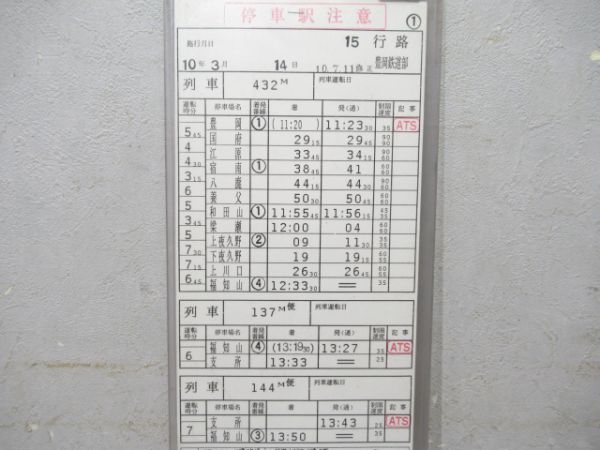 停車駅注意 ①
施行月日 15 行路
10年3月 14日 10.7.11修正 豊岡鉄道部
列車 432M 列車運転日
運転時分 停車場名 着発番線 着 発(通) 制限速度 記事
豊岡 ① (11:20) 11:23 30 35 ATS
5 45 国府 29 15 29 45 90 60
4 江原 33 45 34 15 90 60
4 30 宿南 ① 38 45 41 60 60
3 15 八鹿 44 15 44 30 90 60
6 養父 50 30 50 30 60 60
5 和田山 ① 11:55 45 11:56 15 45 35
3 45 梁瀬 12:00 04 60 60
5 上夜久野 ② 09 11 30 35 35
7 30 下夜久野 19 19 15 60 60
7 15 上川口 26 30 26 45 60 55
6 45 福知山 ④ 12:33 30 = 35
列車 137M便 列車運転日
運転時分 停車場名 着発番線 着 発(通) 制限速度 記事
福知山 ④ (13:19 30) 13:27 35 ATS
6 支所 13:33 = 25
列車 144M便 列車運転日
運転時分 停車場名 着発番線 着 発(通) 制限速度 記事
支所 13:43 25 ATS
7 福知山 ③ 13:50 = 35